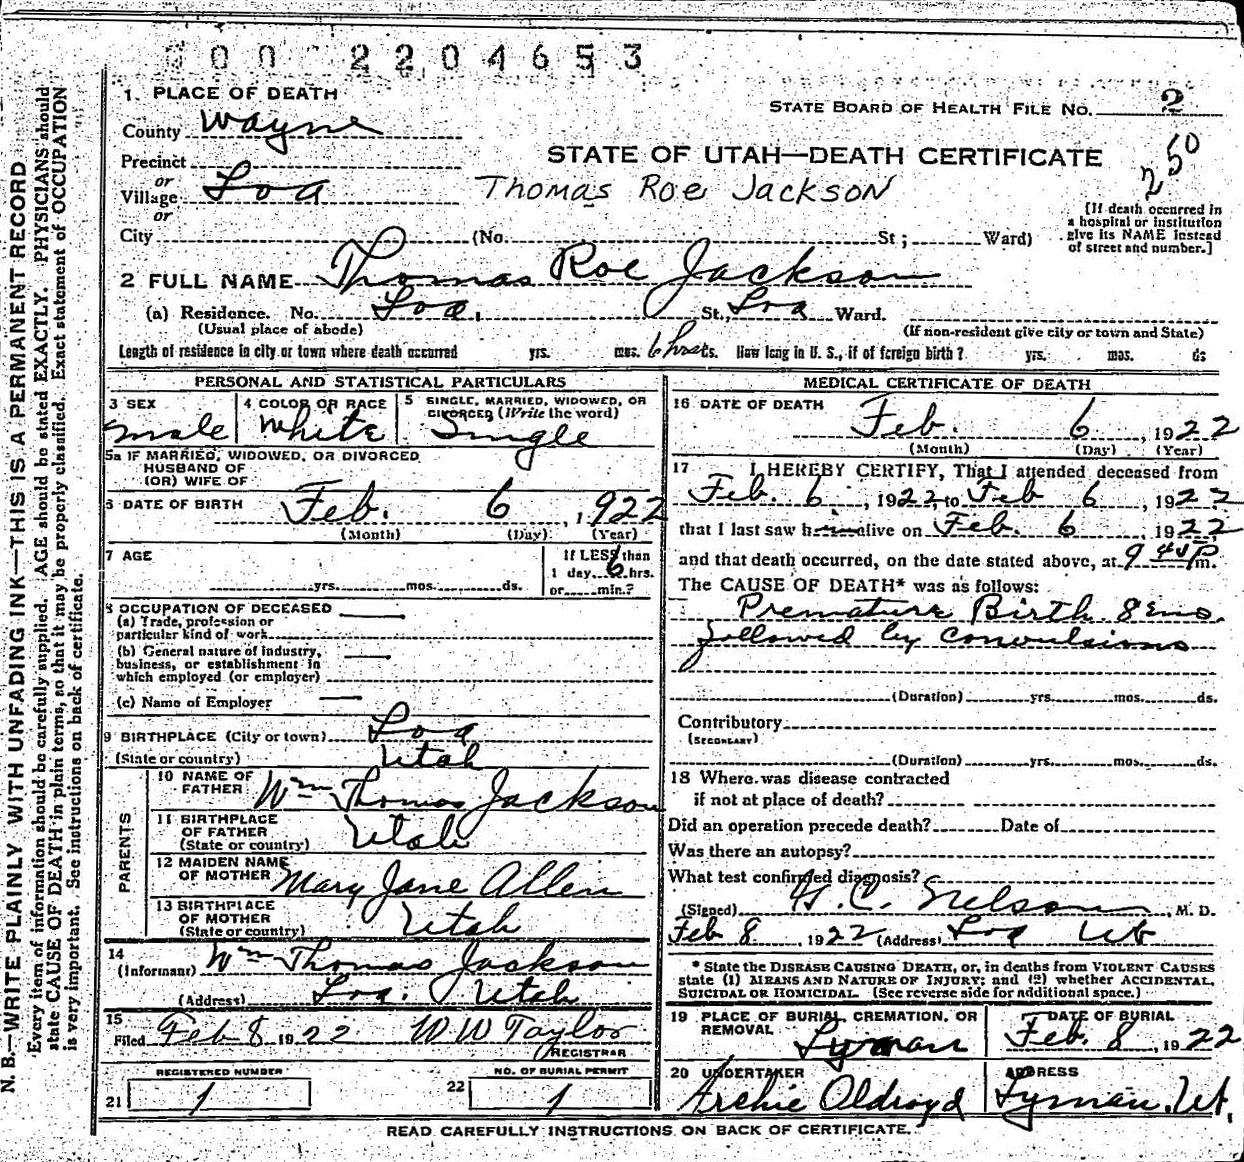 00 2204653
1 PLACE OF DEATH
STATE BOARD OF HEALTH FILE NO. 2
County Wayne
250
STATE OF UTAH—DEATH CERTIFICATE
Precinct
or
Village Loa
Thomas Roe Jackson
or
City (No. St; Ward)
[If death occurred in
a hospital or institution
give its NAME instead
of street and number.]
2 FULL NAME Thomas Roe Jackson
(a) Residence. No. Loa, St, Loa Ward.
(Usual place of abode)
(If non-resident give city or town and State)
Length of residence in city or town where death occurred yrs. mos. 6 hrs ds. How long in U. S., if of foreign birth? yrs. mos. ds
PERSONAL AND STATISTICAL PARTICULARS
3 SEX
male
4 COLOR OR RACE
White
5 SINGLE, MARRIED, WIDOWED, OR
DIVORCED (Write the word)
Single
5a IF MARRIED, WIDOWED, OR DIVORCED
HUSBAND OF
(OR) WIFE OF
6 DATE OF BIRTH Feb. 6, 1922
(Month) (Day) (Year)
7 AGE
yrs. mos. ds.
If LESS than
1 day 6 hrs.
or min.?
8 OCCUPATION OF DECEASED
(a) Trade, profession or
particular kind of work
(b) General nature of industry,
business, or establishment in
which employed (or employer)
(c) Name of Employer
9 BIRTHPLACE (City or town) Loa
(State or country) Utah
PARENTS
10 NAME OF
FATHER Wm Thomas Jackson
11 BIRTHPLACE
OF FATHER
(State or country) Utah
12 MAIDEN NAME
OF MOTHER Mary Jane Allen
13 BIRTHPLACE
OF MOTHER
(State or country) Utah
14
(Informant) Wm Thomas Jackson
(Address) Loa. Utah
15
Filed Feb 8 1922 W W Taylor
REGISTRAR
REGISTERED NUMBER
21 1
NO. OF BURIAL PERMIT
22 1
MEDICAL CERTIFICATE OF DEATH
16 DATE OF DEATH
Feb. 6, 1922
(Month) (Day) (Year)
17 I HEREBY CERTIFY, That I attended deceased from
Feb. 6, 1922 to Feb 6, 1922
that I last saw him alive on Feb. 6, 1922
and that death occurred, on the date stated above, at 9 40 P m.
The CAUSE OF DEATH* was as follows:
Premature Birth 8 mo.
followed by convulsions
(Duration) yrs. mos. ds.
Contributory
(SECONDARY)
(Duration) yrs. mos. ds.
18 Where was disease contracted
if not at place of death?
Did an operation precede death? Date of
Was there an autopsy?
What test confirmed diagnosis?
(Signed) G. C. Nelson, M. D.
Feb 8, 1922 (Address) Loa Ut
* State the DISEASE CAUSING DEATH, or, in deaths from VIOLENT CAUSES
state (1) MEANS AND NATURE OF INJURY; and (2) whether ACCIDENTAL,
SUICIDAL OR HOMICIDAL. (See reverse side for additional space.)
19 PLACE OF BURIAL, CREMATION, OR
REMOVAL Lyman
DATE OF BURIAL
Feb. 8, 1922
20 UNDERTAKER
Archie Oldroyd
ADDRESS
Lyman, Ut.
READ CAREFULLY INSTRUCTIONS ON BACK OF CERTIFICATE.
N. B.—WRITE PLAINLY WITH UNFADING INK—THIS IS A PERMANENT RECORD
Every item of information should be carefully supplied. AGE should be stated EXACTLY. PHYSICIANS should
state CAUSE OF DEATH in plain terms, so that it may be properly classified. Exact statement of OCCUPATION
is very important. See instructions on back of certificate.